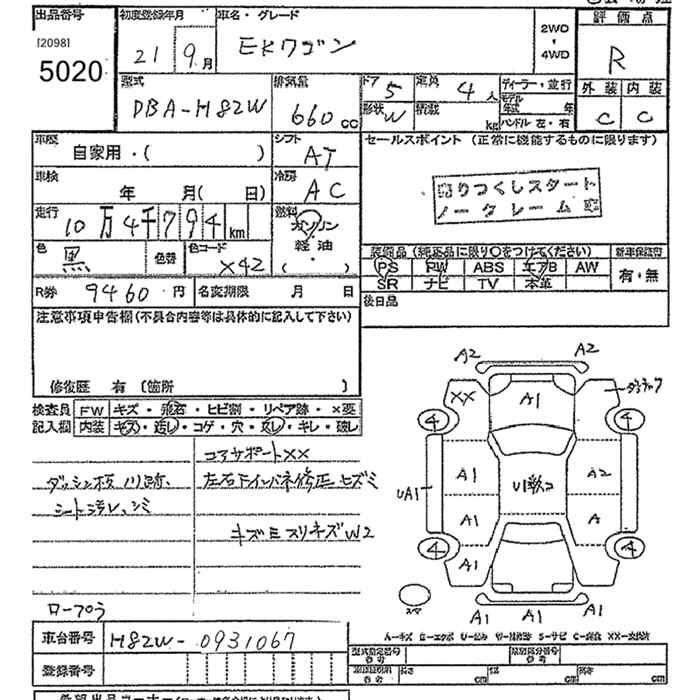 出品番号
[2098]
5020
初度登録年月
21 9月
車名・グレード
EKワゴン
2WD
・
4WD
評価点
R
外装 内装
C C
型式
DBA-H82W
排気量
660cc
ドア 5
定員 4人
形状 W
積載 kg
ディーラー・並行
モデル年式 年
ハンドル 左・右
車歴
自家用・( )
シフト
AT
セールスポイント (正常に機能するものに限ります)
売りつくしスタート
ノークレーム
車検
年 月( 日)
冷房
AC
走行
10万4千794km
燃料
ガソリン
・
軽油
( )
色
黒
色替
色コード
X42
装備品(純正品に限り○をつけてください)
新車保証書
PS PW ABS エアB AW
有・無
SR ナビ TV 本革
R券 9460円
名変期限 月 日
後日品
注意事項申告欄(不具合内容等は具体的に記入して下さい)
修復歴 有 (箇所 )
検査員記入欄
FW キズ・飛石・ヒビ割・リペア跡・×要
内装 キズ・汚レ・コゲ・穴・灰レ・キレ・破レ
コアサポートXX
左右下インパネ修正ヒズミ
シート汚レ、シミ
A2 A2
XX A1
4 4
A1 A2
UA1
A1 A
4 4
A1
A1 A1
スペア
車台番号
H82W-0931067
登録番号
型式指定番号
参考
類別区分番号
参考
長さ cm
幅 cm
高さ cm